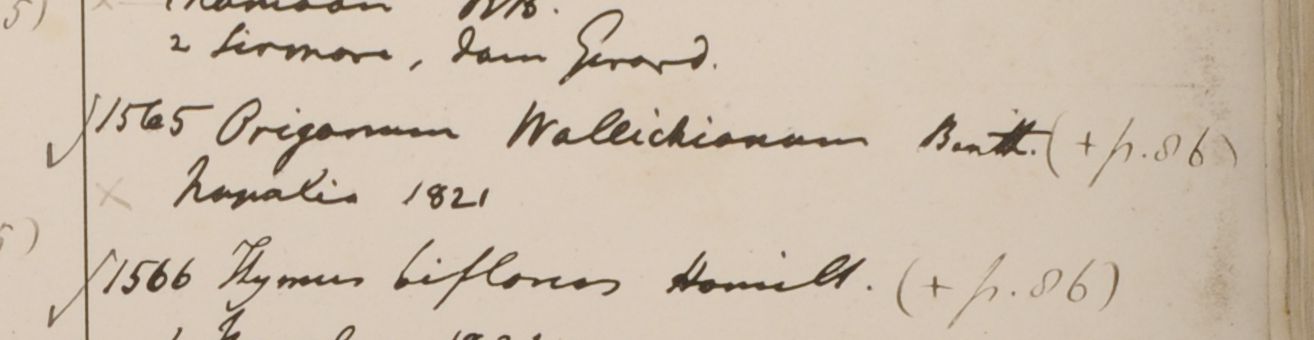 2 Sirmore, dom Gerard.
1565 Origanum Wallichianum Benth. (+ p. 86)
× Napalia 1821
1566 Thymus biflorus Hamilt. (+ p. 86)